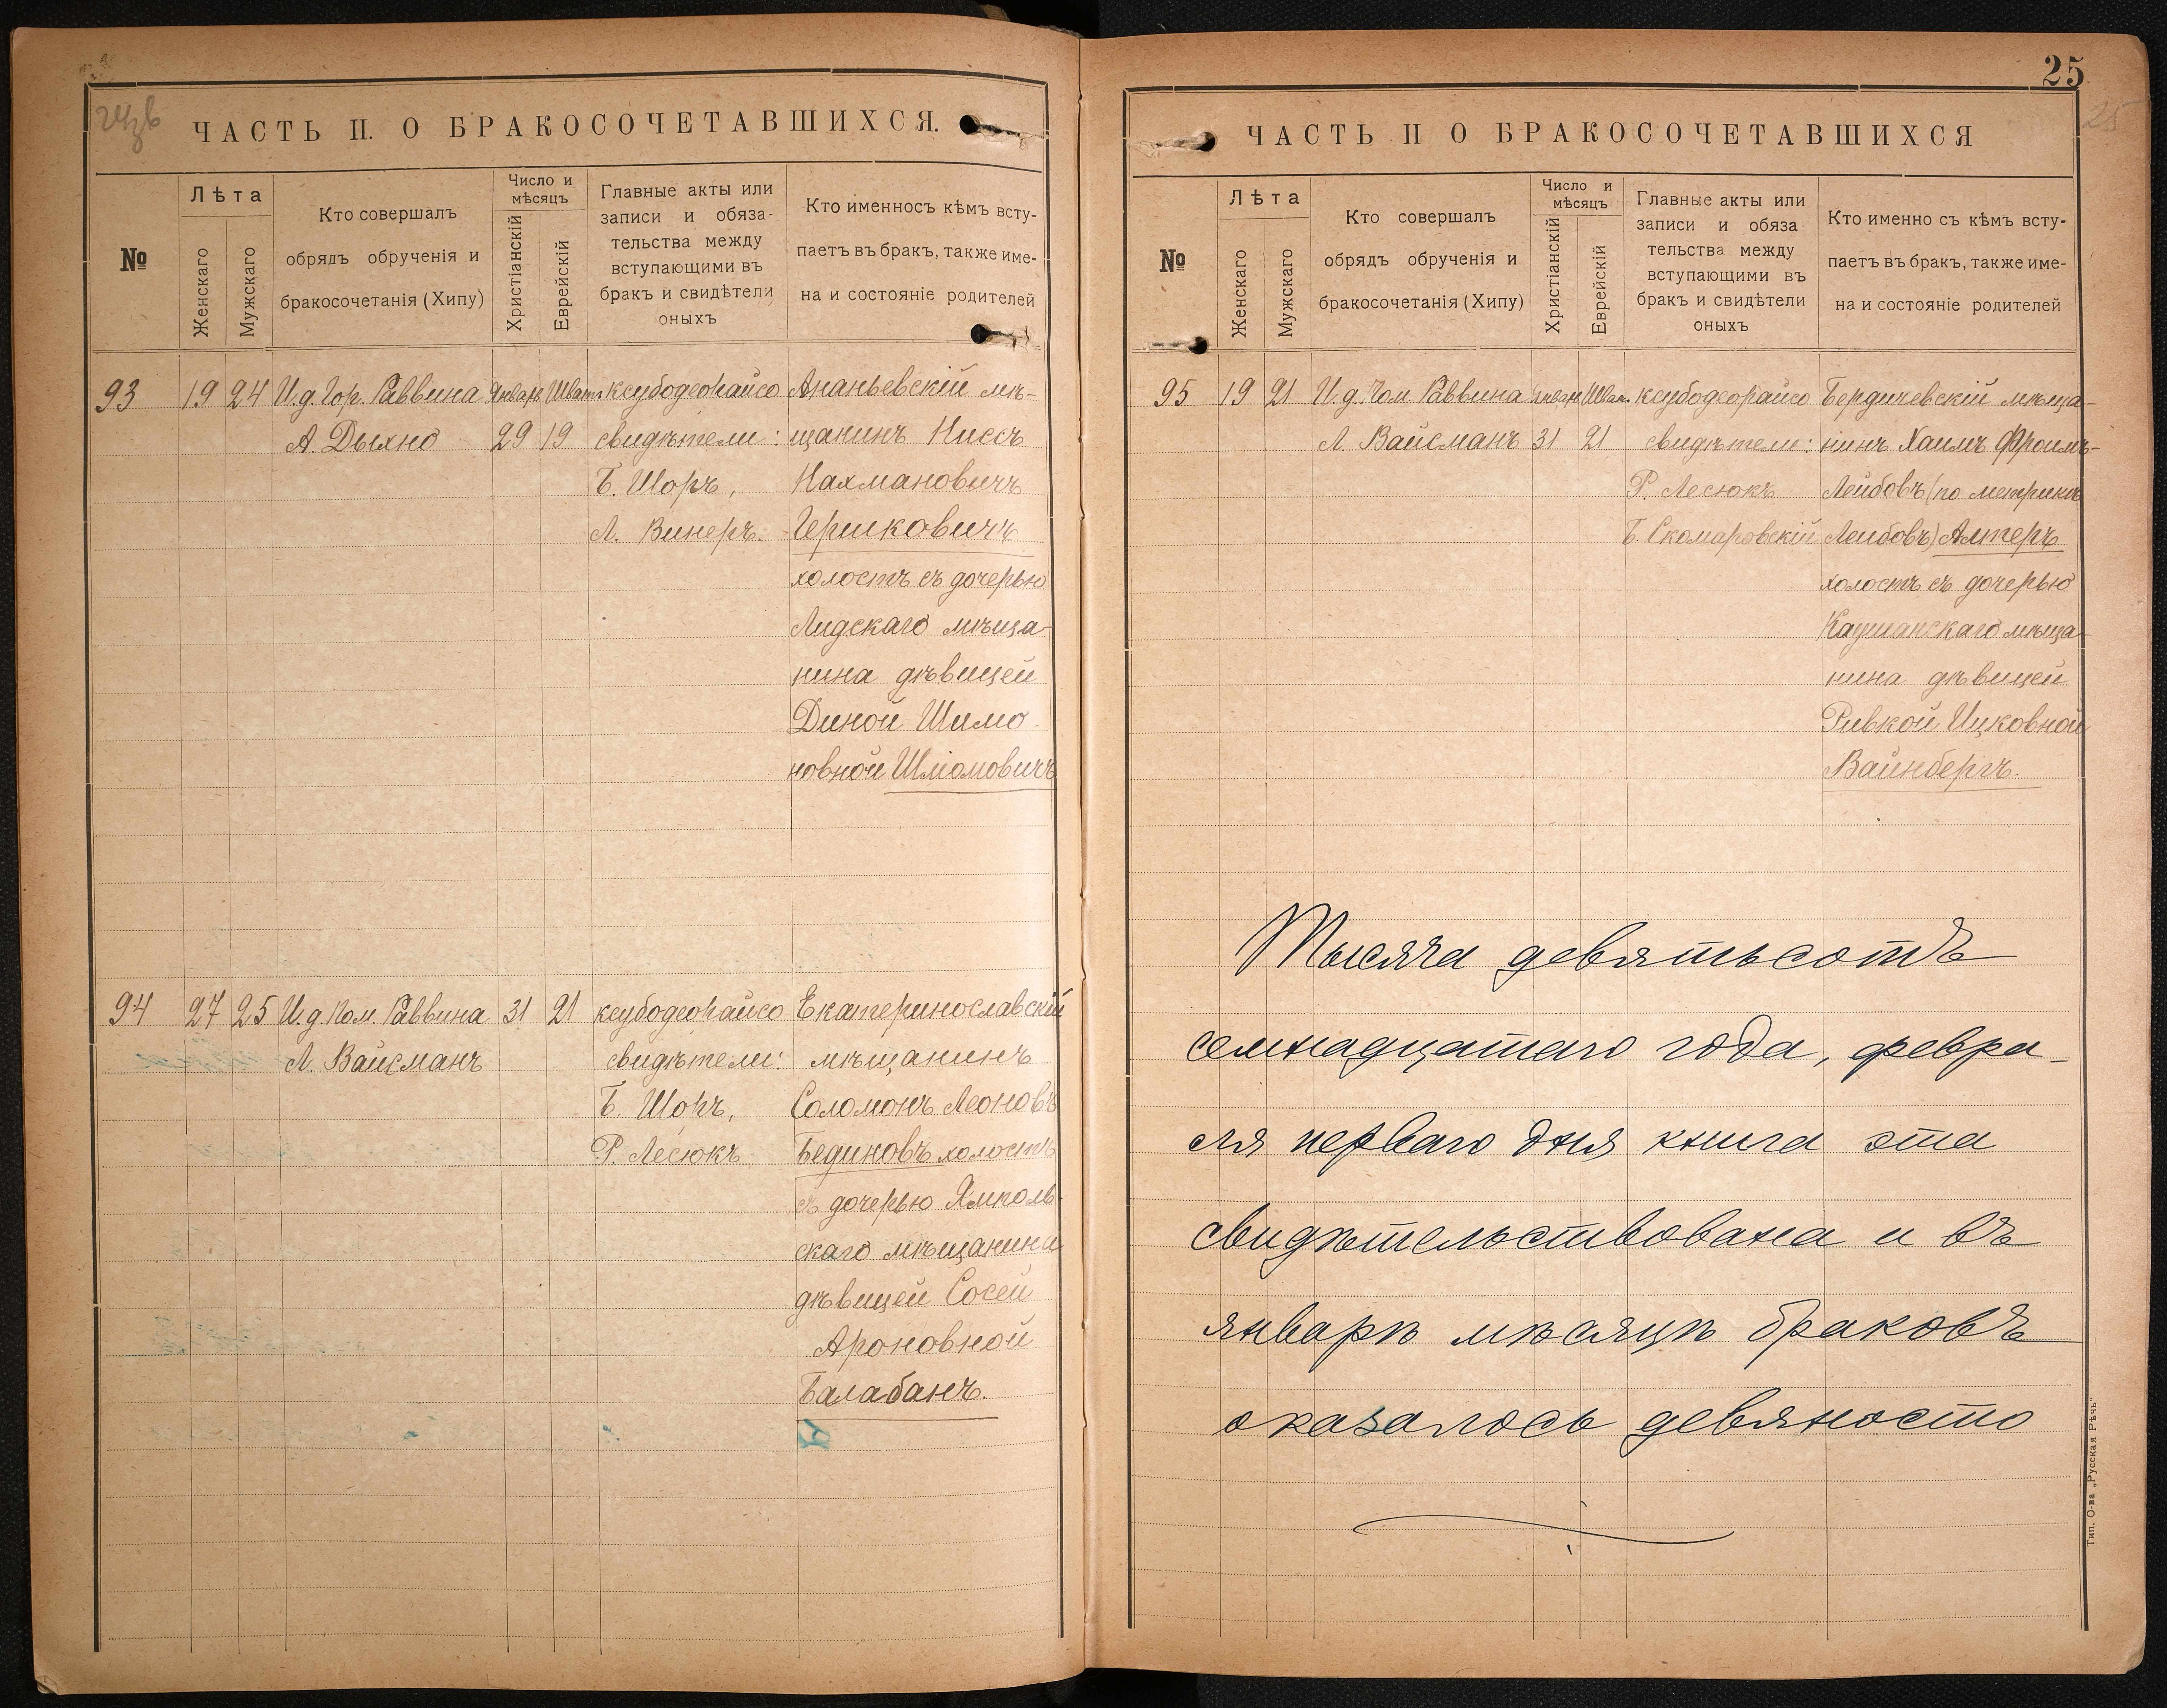 ЧАСТЬ II. О БРАКОСОЧЕТАВШИХСЯ.
№
Лѣта
Женскаго
Мужскаго
Кто совершалъ
обрядъ обрученія и
бракосочетанія (Хипу)
Число и
мѣсяцъ
Христіанскій
Еврейскій
Главные акты или
записи и обяза-
тельства между
вступающими въ
бракъ и свидѣтели
оныхъ
Кто именносъ кѣмъ всту-
паетъ въ бракъ, также име-
на и состояніе родителей
93 19 24 И.д. Гор. Раввина Январь Шватъ ксубодеорайсо Ананьевскій мѣ-
А. Дыхно 29 19 свидѣтели: щанинъ Ниссъ
Б. Шоръ, Нахмановичъ
Л. Винеръ. Гершковичъ
холостъ съ дочерью
Лидскаго мѣща-
нина дѣвицей
Диной Шимо-
новной Шліомовичъ
94 27 25 И.д. Пом. Раввина 31 21 ксубодеорайсо Екатеринославскій
Л. Вайсманъ свидѣтели: мѣщанинъ
Б. Шоръ, Соломонъ Леоновъ
Р. Лесюкъ Бединовъ холостъ
съ дочерью Ямполь-
скаго мѣщанина
дѣвицей Сосей
Ароновной
Балабанъ.
25
ЧАСТЬ II О БРАКОСОЧЕТАВШИХСЯ
№
Лѣта
Женскаго
Мужскаго
Кто совершалъ
обрядъ обрученія и
бракосочетанія (Хипу)
Число и
мѣсяцъ
Христіанскій
Еврейскій
Главные акты или
записи и обяза
тельства между
вступающими въ
бракъ и свидѣтели
оныхъ
Кто именно съ кѣмъ всту-
паетъ въ бракъ, также име-
на и состояніе родителей
95 19 21 И.д. Пом. Раввина Январь Шват. ксубодеорайсо Бердичевскій мѣща-
Л. Вайсманъ 31 21 свидѣтели: нинъ Хаимъ Фроимъ-
Р. Лесюкъ Лейбовъ (по метрикѣ
Б. Скомаровскій Лейбовъ) Алтеръ
холостъ съ дочерью
Каушанскаго мѣща-
нина дѣвицей
Ривкой Ицковной
Вайнбергъ.
Тысяча девятьсотъ
семнадцатаго года, февра-
ля перваго дня книга эта
свидѣтельствована и въ
январѣ мѣсяцѣ браковъ
оказалось девяносто
Тип. О-ва „Русская Рѣчь“